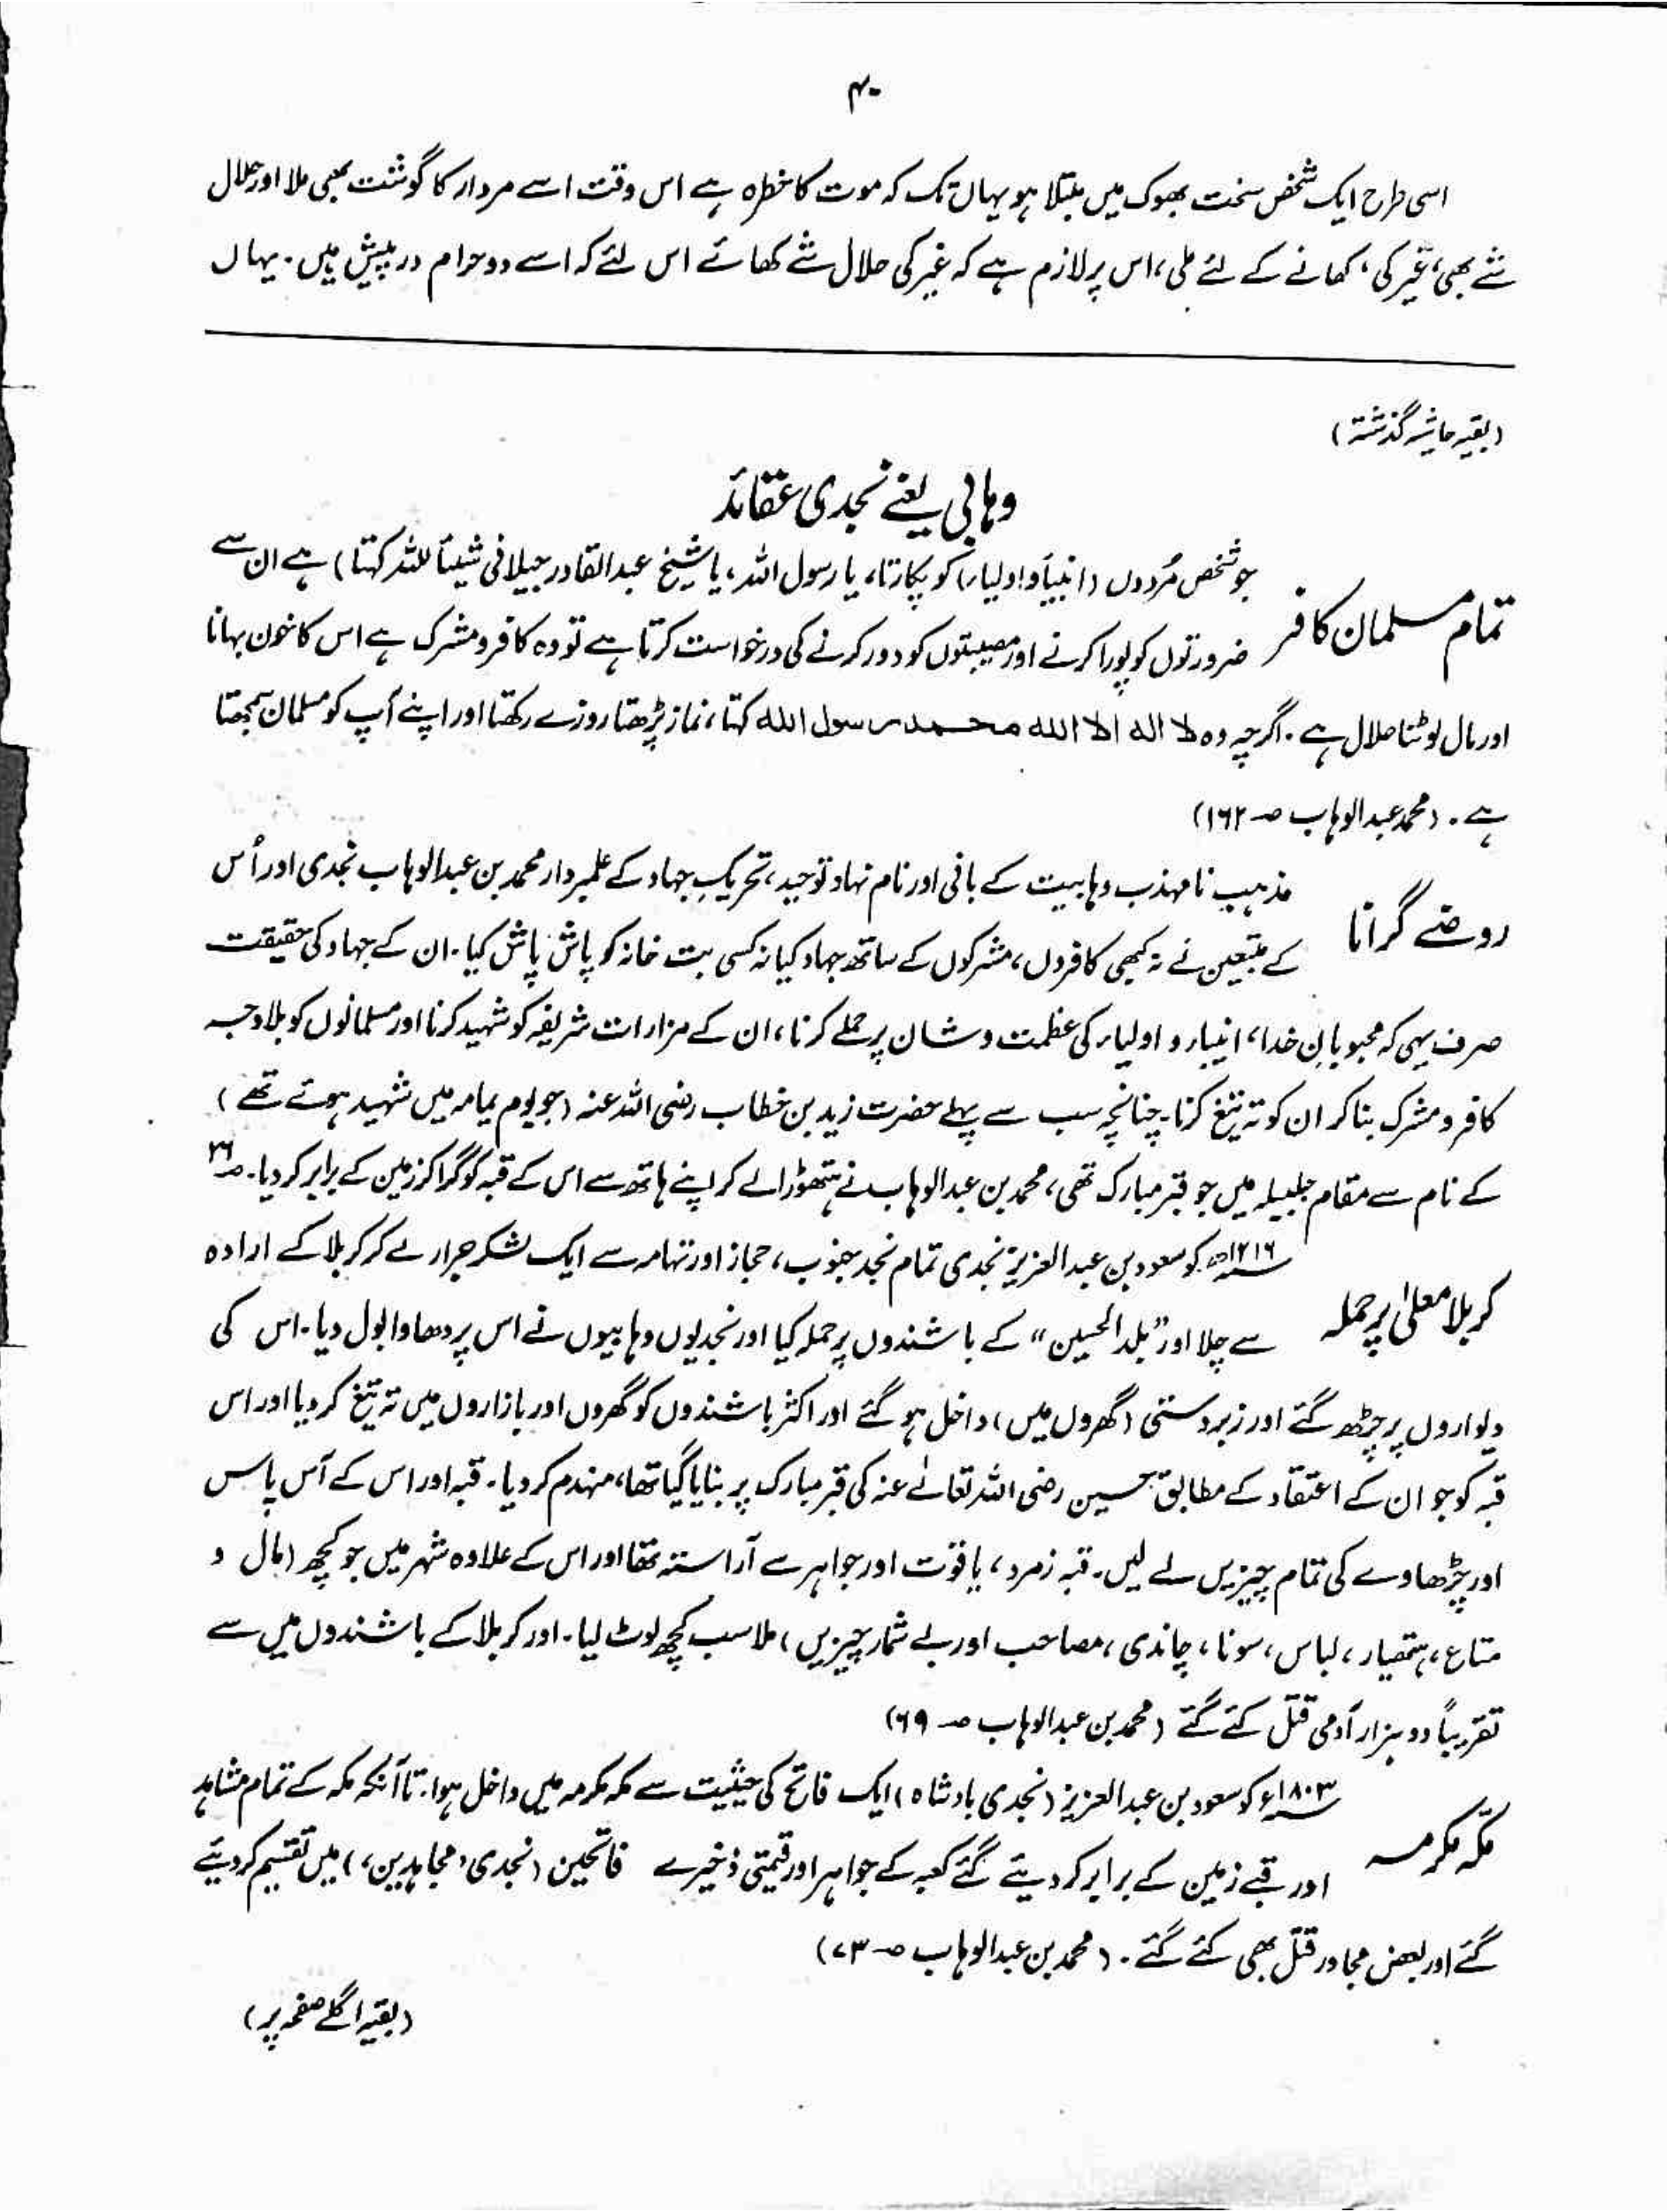 ۴۰
اسی طرح ایک شخص سخت بھوک میں مبتلا ہو یہاں تک کہ موت کا خطرہ ہے اس وقت اسے مردار کا گوشت بھی ملا اور حلال
شے بھی، غیر کی، کھانے کے لئے ملی، اس پر لازم ہے کہ غیر کی حلال شے کھائے اس لئے کہ اسے دو حرام درپیش ہیں۔ یہاں
(بقیہ حاشیہ گذشتہ)
وہابی یعنے نجدی عقائد
تمام مسلمان کافر جو شخص مُردوں (انبیأ و اولیاء) کو پکارتا، یا رسول اللہ، یا شیخ عبدالقادر جیلانی شیئاً للہ کہتا) ہے ان سے
ضرورتوں کو پورا کرنے اور مصیبتوں کو دور کرنے کی درخواست کرتا ہے تو وہ کافر و مشرک ہے اس کا خون بہانا
اور مال لوٹنا حلال ہے۔ اگرچہ وہ لا الہ الا اللہ محمد رسول اللہ کہتا، نماز پڑھتا روزے رکھتا اور اپنے آپ کو مسلمان سمجھتا
ہے۔ (محمد عبدالوہاب صـ ۱۶۲)
روضے گرانا مذہب نامہذب وہابیت کے بانی اور نام نہاد توحید، تحریکِ جہاد کے علمبردار محمد بن عبدالوہاب نجدی اور اُس
کے متبعین نے نہ کبھی کافروں، مشرکوں کے ساتھ جہاد کیا نہ کسی بت خانہ کو پاش پاش کیا۔ ان کے جہاد کی حقیقت
صرف یہی کہ محبوبانِ خدا، انبیاء و اولیاء کی عظمت و شان پر حملے کرنا، ان کے مزارات شریفہ کو شہید کرنا اور مسلمانوں کو بلاوجہ
کافر و مشرک بنا کر ان کو تہ تیغ کرنا۔ چنانچہ سب سے پہلے حضرت زید بن خطاب رضی اللہ عنہ (جو یوم یمامہ میں شہید ہوئے تھے)
کے نام سے مقام جبیلہ میں جو قبر مبارک تھی، محمد بن عبدالوہاب نے ہتھوڑا لے کر اپنے ہاتھ سے اس کے قبہ کو گرا کر زمین کے برابر کر دیا۔ صـ ۳۶
کربلا معلیٰ پر حملہ ۱۲۱۶ھ کو سعود بن عبدالعزیز نجدی تمام نجد جنوب، حجاز اور تہامہ سے ایک لشکر جرار لے کر کربلا کے ارادہ
سے چلا اور "بلد الحسین" کے باشندوں پر حملہ کیا اور نجدیوں وہابیوں نے اس پر دھاوا بول دیا۔ اس کی
دیواروں پر چڑھ گئے اور زبردستی (گھروں میں) داخل ہو گئے اور اکثر باشندوں کو گھروں اور بازاروں میں تہ تیغ کر دیا اور اس
قبہ کو جو ان کے اعتقاد کے مطابق حسین رضی اللہ تعالےٰ عنہ کی قبر مبارک پر بنایا گیا تھا، منہدم کر دیا۔ قبہ اور اس کے آس پاس
اور چڑھاوے کی تمام چیزیں لے لیں۔ قبہ زمرد، یاقوت اور جواہر سے آراستہ تھا اور اس کے علاوہ شہر میں جو کچھ (مال و
متاع، ہتھیار، لباس، سونا، چاندی، مصاحب اور بے شمار چیزیں) ملا سب کچھ لوٹ لیا۔ اور کربلا کے باشندوں میں سے
تقریباً دو ہزار آدمی قتل کئے گئے (محمد بن عبدالوہاب صـ ۶۹)
مکّہ مکرمہ ۱۸۰۳ء کو سعود بن عبدالعزیز (نجدی بادشاہ) ایک فاتح کی حیثیت سے مکہ مکرمہ میں داخل ہوا۔ تا آنکہ مکہ کے تمام مشاہد
اور قبے زمین کے برابر کر دیئے گئے کعبہ کے جواہر اور قیمتی ذخیرے فاتحین (نجدی، مجاہدین،) میں تقسیم کر دیئے
گئے اور بعض مجاور قتل بھی کئے گئے۔ (محمد بن عبدالوہاب صـ ۷۳)
(بقیہ اگلے صفحہ پر)